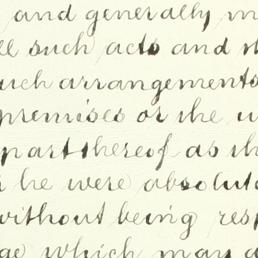 and generally m
ll such acts and
uch arrangements
premises or the u
part thereof as th
he were absolut
without being resp
which may a